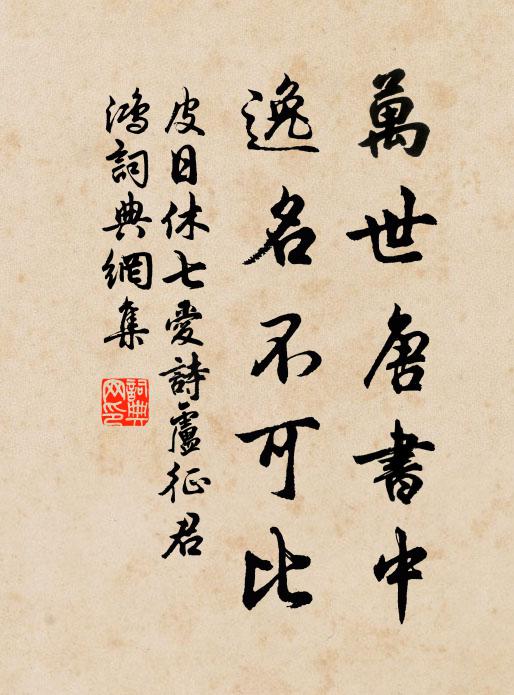 萬世唐書中
逸名不可比
皮日休七愛詩盧征君
鴻詞典網集
詞典
网印